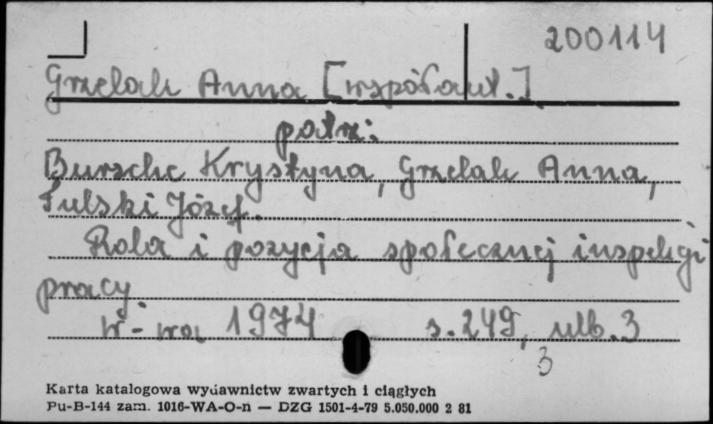 200114
Grzelak Anna [współaut.]
patrz:
Bursche Krystyna, Grzelak Anna,
Tulski Józef.
Rola i pozycja społecznej inspekcji
pracy
W-wa 1974 s. 249, nlb. 3
3
Karta katalogowa wydawnictw zwartych i ciągłych
Pu-B-144 zam. 1016-WA-O-n — DZG 1501-4-79 5.050.000 2 81